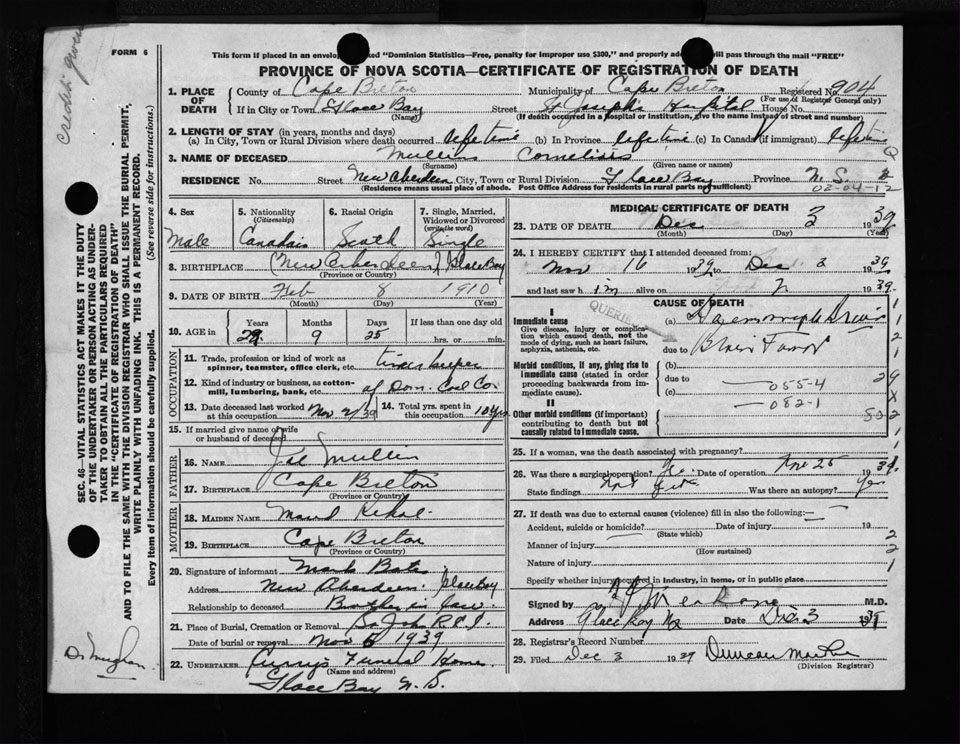 Credits given
FORM 6
This form if placed in an envelope marked "Dominion Statistics—Free, penalty for improper use $300," and properly addressed will pass through the mail "FREE"
PROVINCE OF NOVA SCOTIA—CERTIFICATE OF REGISTRATION OF DEATH
1. PLACE OF DEATH County of Cape Breton Municipality of Cape Breton Registered No. 904
(For use of Registrar General only)
If in City or Town Glace Bay Street St Joseph's Hospital House No.
(Name) (If death occurred in a hospital or institution, give the name instead of street and number)
2. LENGTH OF STAY (in years, months and days)
(a) In City, Town or Rural Division where death occurred lifetime (b) In Province lifetime (c) In Canada (if immigrant) lifetime
3. NAME OF DECEASED Mullins Cornelius
(Surname) (Given name or names)
RESIDENCE No. Street New Aberdeen City, Town or Rural Division Glace Bay Province N. S.
(Residence means usual place of abode. Post Office Address for residents in rural parts not sufficient) 02-04-12
4. Sex 5. Nationality (Citizenship) 6. Racial Origin 7. Single, Married, Widowed or Divorced (write the word)
Male Canadian Scotch Single
8. BIRTHPLACE (New Aberdeen) Glace Bay
(Province or Country)
9. DATE OF BIRTH Feb 8 1910
(Month) (Day) (Year)
10. AGE in Years Months Days If less than one day
29 9 25 hrs. or min.
OCCUPATION
11. Trade, profession or kind of work as spinner, teamster, office clerk, etc. timekeeper
12. Kind of industry or business, as cotton-mill, lumbering, bank, etc. of Dom. Coal Co
13. Date deceased last worked at this occupation Nov 2/39 14. Total yrs. spent in this occupation 10 yrs.
15. If married give name of wife or husband of deceased
FATHER
16. NAME Joe Mullin
17. BIRTHPLACE Cape Breton
(Province or Country)
MOTHER
18. MAIDEN NAME Maud
19. BIRTHPLACE Cape Breton
(Province or Country)
20. Signature of informant Mark
Address New Aberdeen Glace Bay
Relationship to deceased Brother in law.
21. Place of Burial, Cremation or Removal
Date of burial or removal Nov 5 1939
22. UNDERTAKER Curry's Funeral Home
(Name and address)
Glace Bay N. S.
MEDICAL CERTIFICATE OF DEATH
23. DATE OF DEATH Dec 3 1939
(Month) (Day) (Year)
24. I HEREBY CERTIFY that I attended deceased from:
Nov 16 1939 to Dec 3 1939
and last saw him alive on 1939.
QUERIED
CAUSE OF DEATH
I
Immediate cause
Give disease, injury or complication which caused death, not the mode of dying, such as heart failure, asphyxia, asthenia, etc.
(a)
due to
Morbid conditions, if any, giving rise to immediate cause (stated in order proceeding backwards from immediate cause).
(b)
due to 055-4
(c) 082-1
II
Other morbid conditions (if important) contributing to death but not causally related to immediate cause.
25. If a woman, was the death associated with pregnancy?
26. Was there a surgical operation? Yes Date of operation Nov 25 1939.
State findings Was there an autopsy? Yes
27. If death was due to external causes (violence) fill in also the following:—
Accident, suicide or homicide? Date of injury 19
(State which)
Manner of injury
(How sustained)
Nature of injury
Specify whether injury occurred in industry, in home, or in public place
Signed by M.D.
Address Glace Bay NS Date Dec 3 1939
28. Registrar's Record Number
29. Filed Dec 3 1939 Duncan
(Division Registrar)
SEC. 46—VITAL STATISTICS ACT MAKES IT THE DUTY OF THE UNDERTAKER OR PERSON ACTING AS UNDERTAKER TO OBTAIN ALL THE PARTICULARS REQUIRED IN THE "CERTIFICATE OF REGISTRATION OF DEATH" AND TO FILE THE SAME WITH THE DIVISION REGISTRAR WHO SHALL ISSUE THE BURIAL PERMIT.
WRITE PLAINLY WITH UNFADING INK. THIS IS A PERMANENT RECORD.
Every item of Information should be carefully supplied. (See reverse side for instructions.)